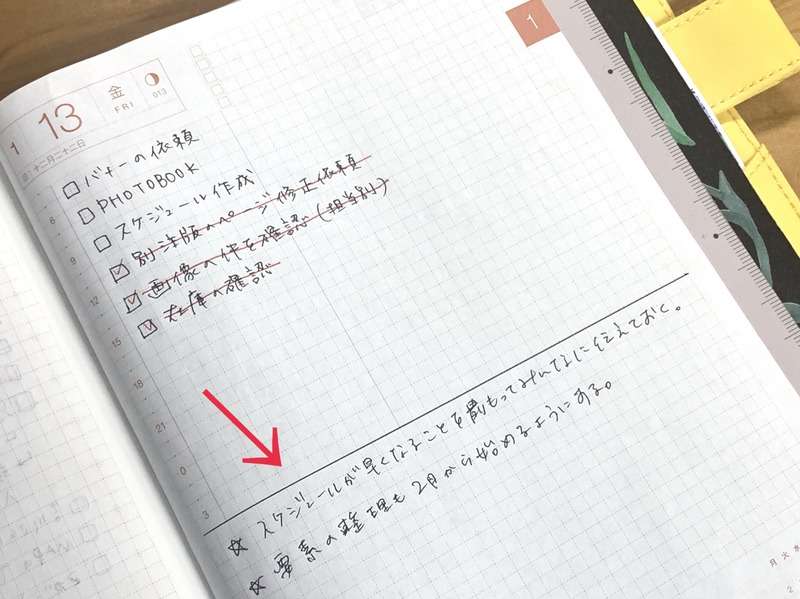 1
1 13 金 FRI 013
十二月二十二日
□バナーの依頼
□PHOTOBOOK
□スケジュール作成
☑別注版のページ修正依頼
☑画像の件を確認(担当別)
☑在庫の確認
6
9
12
15
18
21
0
3
☆スケジュールが早くなることを前もってみんなに伝えておく。
☆要素の整理も2月から始めるようにする。
月 火 水
2